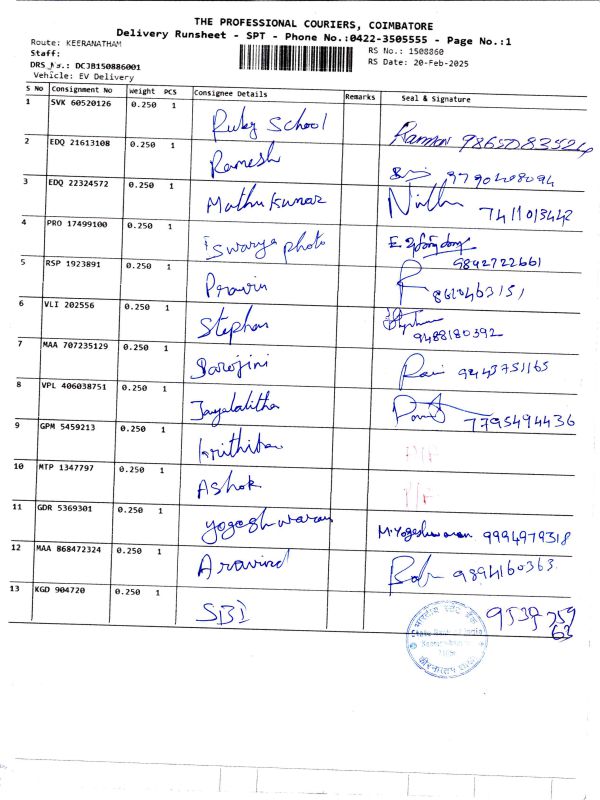 THE PROFESSIONAL COURIERS, COIMBATORE
Delivery Runsheet - SPT - Phone No.:0422-3505555 - Page No.:1
Route: KEERANATHAM
RS No.: 1508860
Staff:
RS Date: 20-Feb-2025
DRS No.: DCJB150886001
Vehicle: EV Delivery
S No Consignment No Weight PCS Consignee Details Remarks Seal & Signature
1 SVK 60520126 0.250 1 Ruby School Raman
2 EDQ 21613108 0.250 1 Ramesh 9790408094
3 EDQ 22324572 0.250 1 Mathu kumar 7411013442
4 PRO 17499100 0.250 1 iswarya photo 9842722661
5 RSP 1923891 0.250 1 Pravin 8610463151
6 VLI 202556 0.250 1 Stephan 9488180392
7 MAA 707235129 0.250 1 Sarojini 9443751165
8 VPL 406038751 0.250 1 Jayalalitha 7795494436
9 GPM 5459213 0.250 1 krithika
10 MTP 1347797 0.250 1 Ashok
11 GDR 5369301 0.250 1 yogeshwaran M.Yogeshwaran 9994979318
12 MAA 868472324 0.250 1 Aravind 9894160363
13 KGD 904720 0.250 1 SBI 9539 759
63
भारतीय स्टेट बैंक
State Bank of India